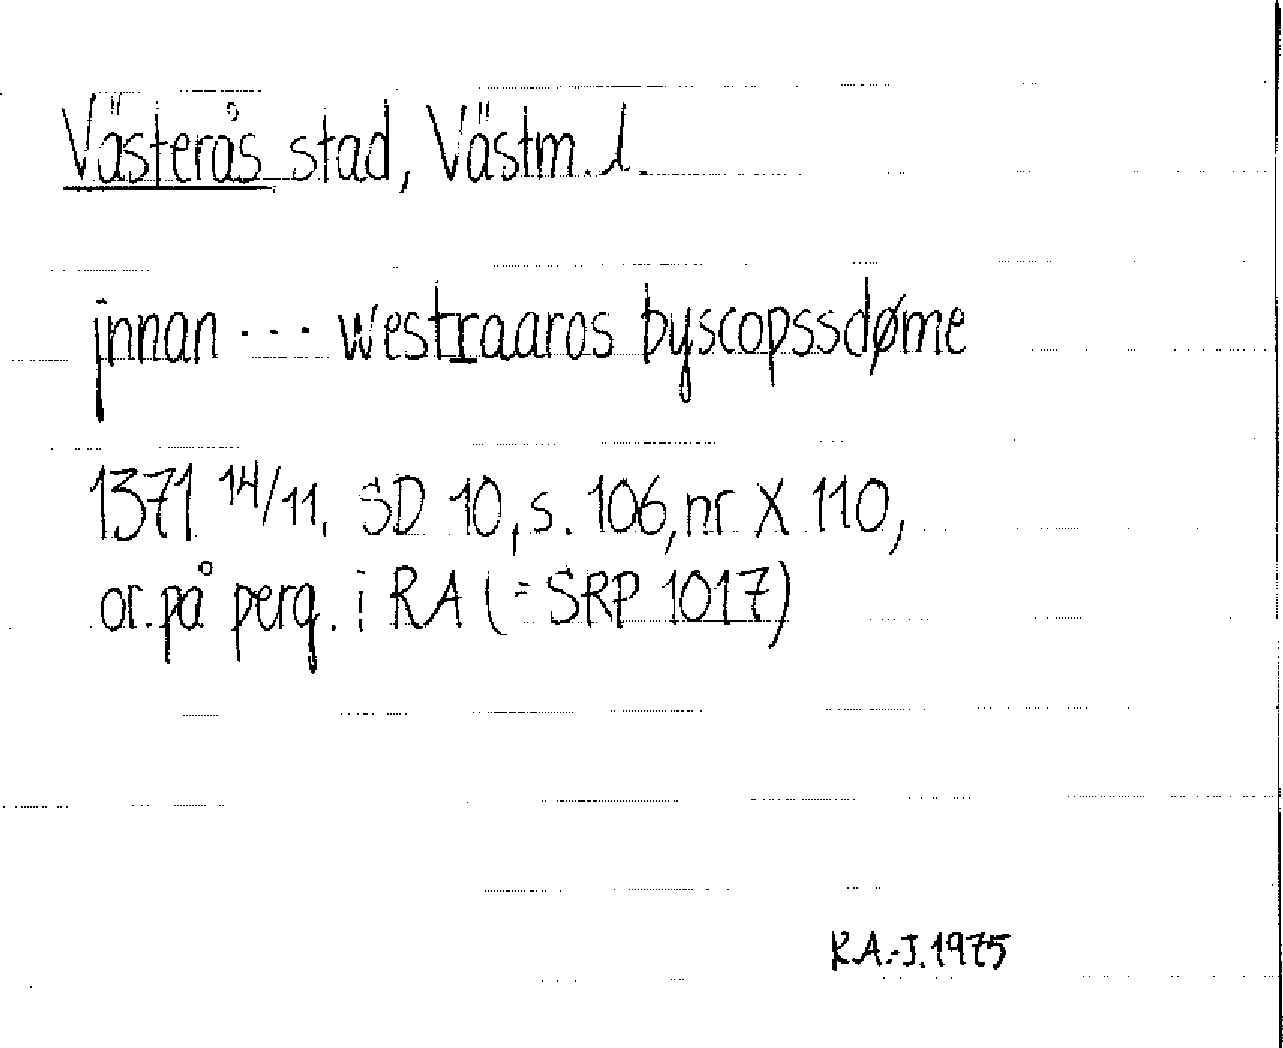 Västerås stad, Västm. l.
jnnan --- westraaros byscopssdøme
1371 14/11. SD 10, s. 106, nr X 110,
or. på perg. i RA (= SRP 1017)
R.A.-J. 1975